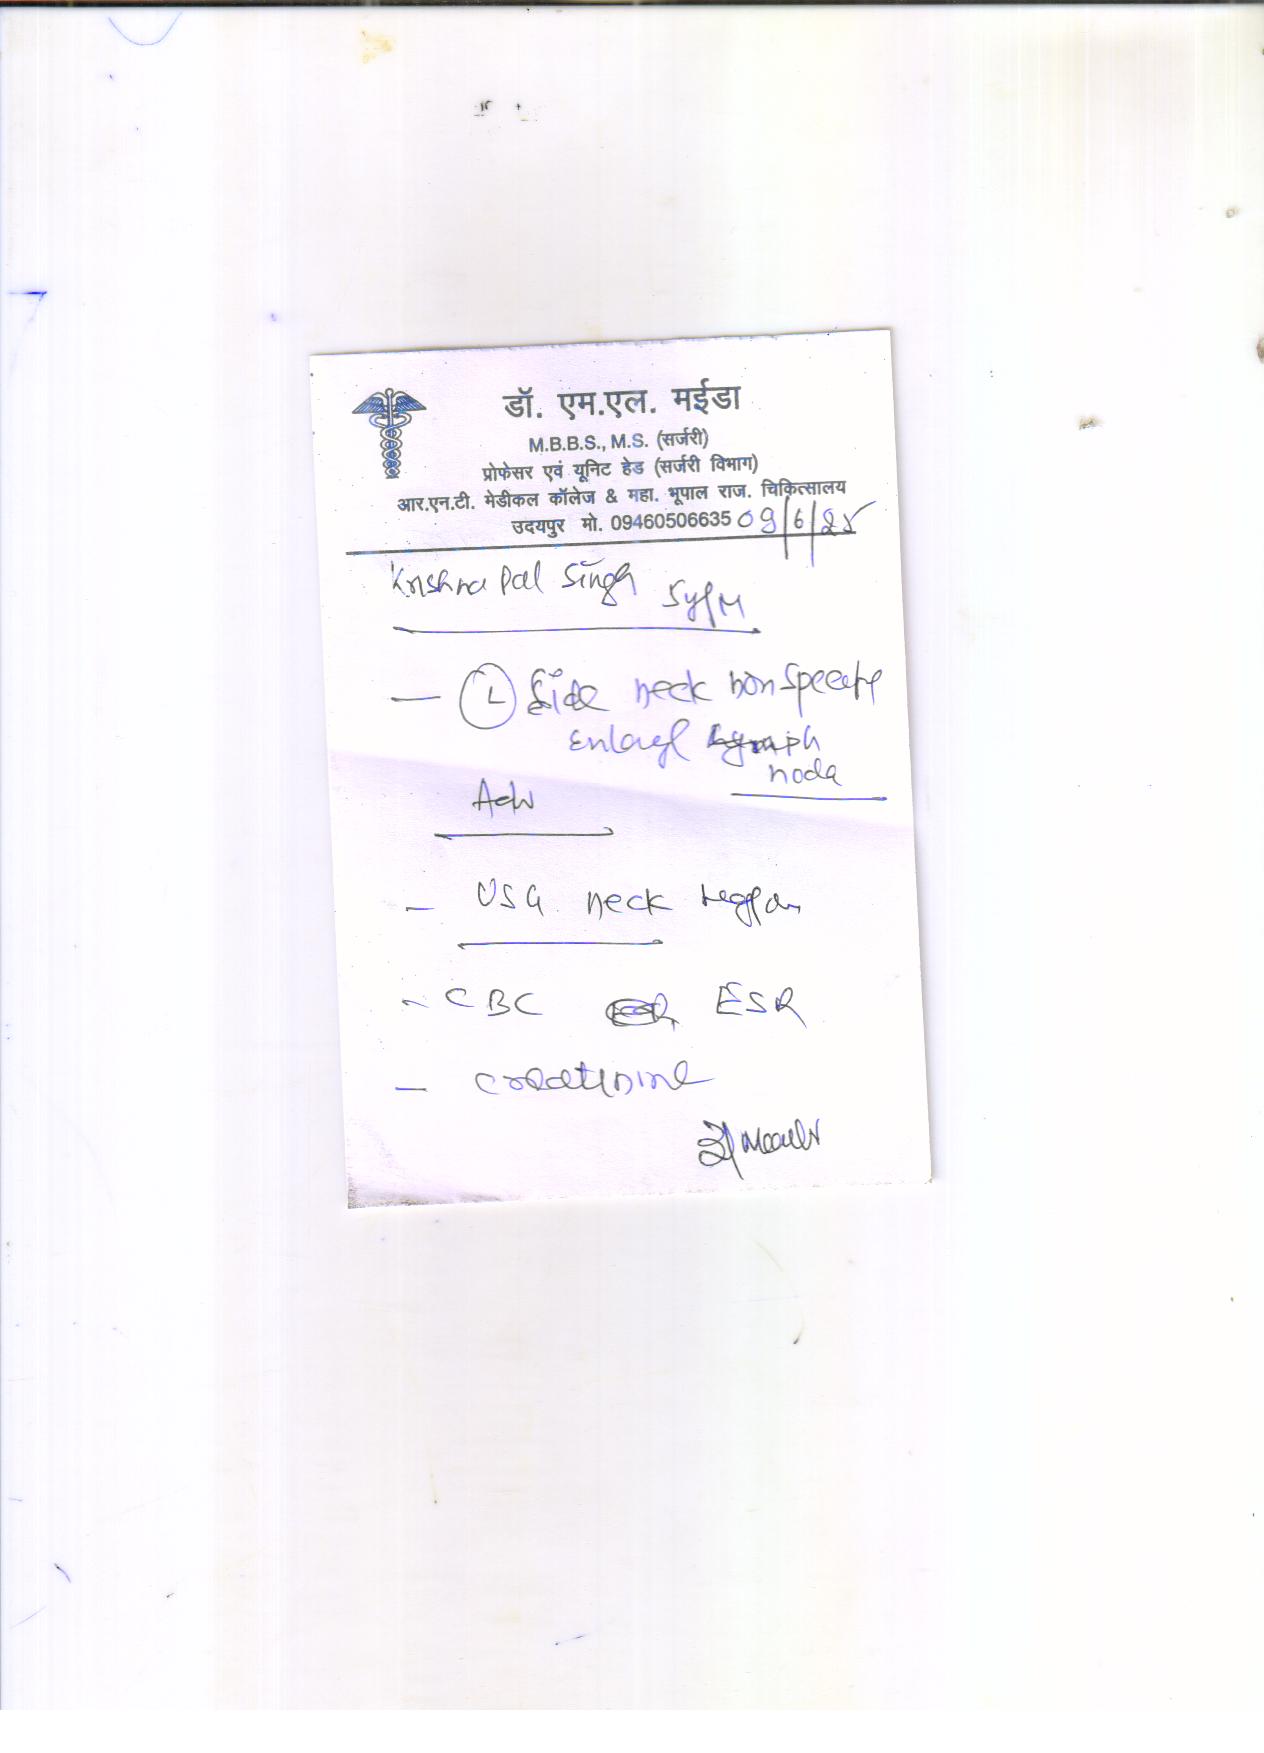 डॉ. एम.एल. मईडा
M.B.B.S., M.S. (सर्जरी)
प्रोफेसर एवं यूनिट हेड (सर्जरी विभाग)
आर.एन.टी. मेडीकल कॉलेज & महा. भूपाल राज. चिकित्सालय
उदयपुर मो. 09460506635 09/6/25
Krishna Pal Singh 5y/M
— (L) Side neck non specific
Enlargd lymph
node
Adv
– USG neck region
– CBC ESR
– creatinine